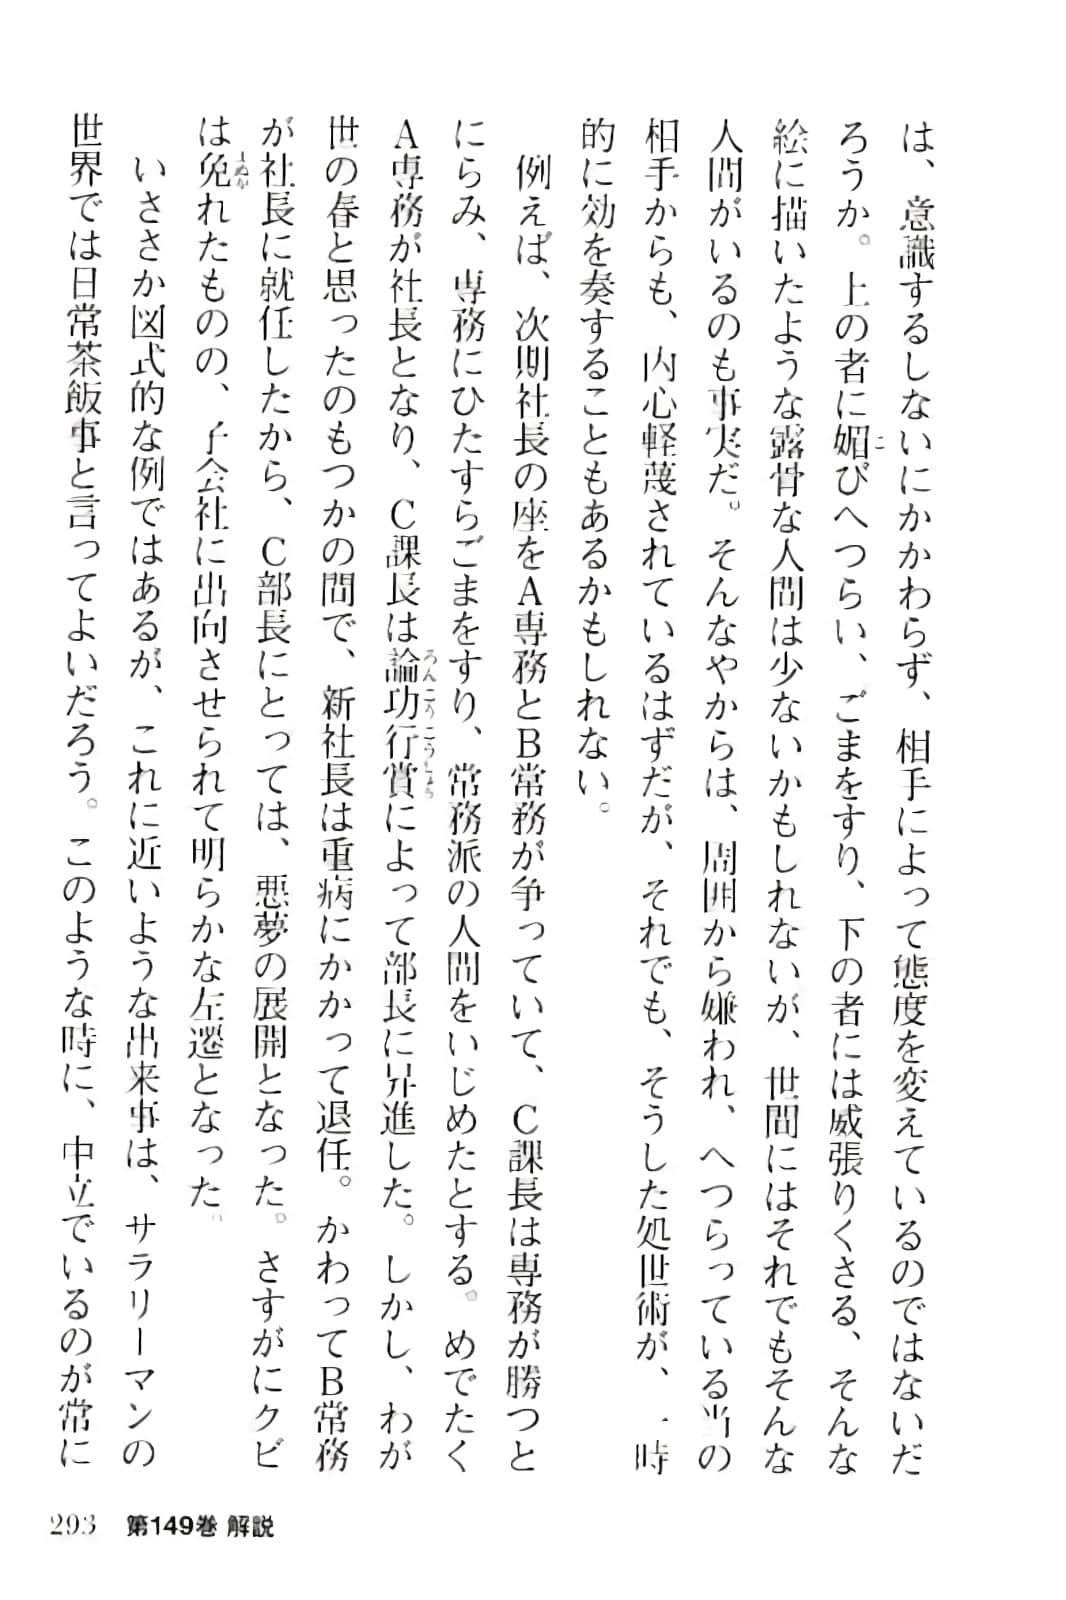 は、意識するしないにかかわらず、相手によって態度を変えているのではないだ
ろうか。上の者に媚びへつらい、ごまをすり、下の者には威張りくさる、そんな
絵に描いたような露骨な人間は少ないかもしれないが、世間にはそれでもそんな
人間がいるのも事実だ。そんなやからは、周囲から嫌われ、へつらっている当の
相手からも、内心軽蔑されているはずだが、それでも、そうした処世術が、一時
的に効を奏することもあるかもしれない。
例えば、次期社長の座をA専務とB常務が争っていて、C課長は専務が勝つと
にらみ、専務にひたすらごまをすり、常務派の人間をいじめたとする。めでたく
A専務が社長となり、C課長は論功行賞によって部長に昇進した。しかし、わが
世の春と思ったのもつかの間で、新社長は重病にかかって退任。かわってB常務
が社長に就任したから、C部長にとっては、悪夢の展開となった。さすがにクビ
は免れたものの、子会社に出向させられて明らかな左遷となった。
いささか図式的な例ではあるが、これに近いような出来事は、サラリーマンの
世界では日常茶飯事と言ってよいだろう。このような時に、中立でいるのが常に
293 第149巻 解説